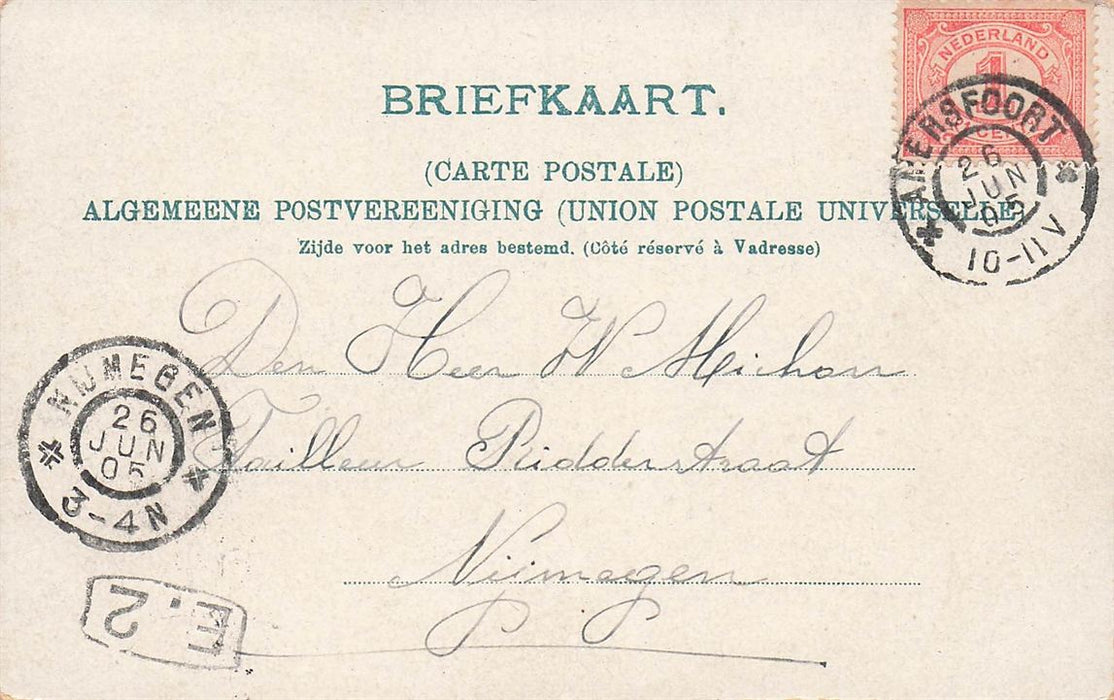 NEDERLAND
1
CENT
AMERSFOORT
26
JUN
05
10-11V
BRIEFKAART.
(CARTE POSTALE)
ALGEMEENE POSTVEREENIGING (UNION POSTALE UNIVERSELLE)
Zijde voor het adres bestemd. (Côté réservé à Vadresse)
Den Heer W Michon
Tailleur Ridderstraat
Nijmegen
NIJMEGEN
26
JUN
05
3-4N
E.2